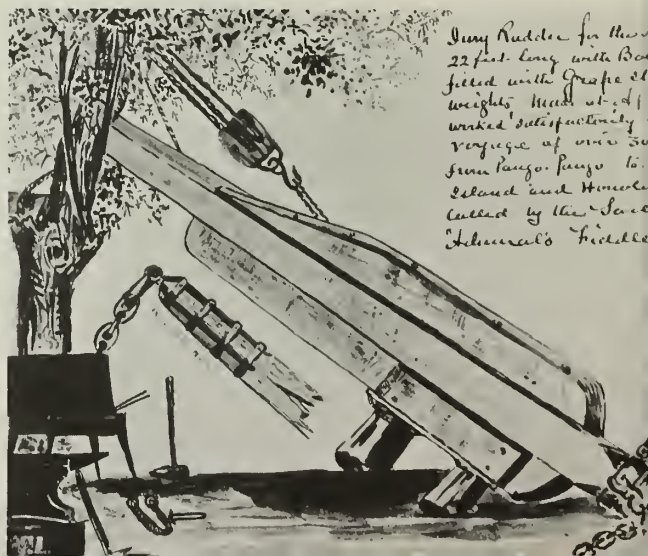 Jury Rudder for the
22 feet long with
filled with Grape
weights made at
worked satisfactorily
voyage of over
from Pango-Pango to
Island and
called by the
"Admiral's Fiddle